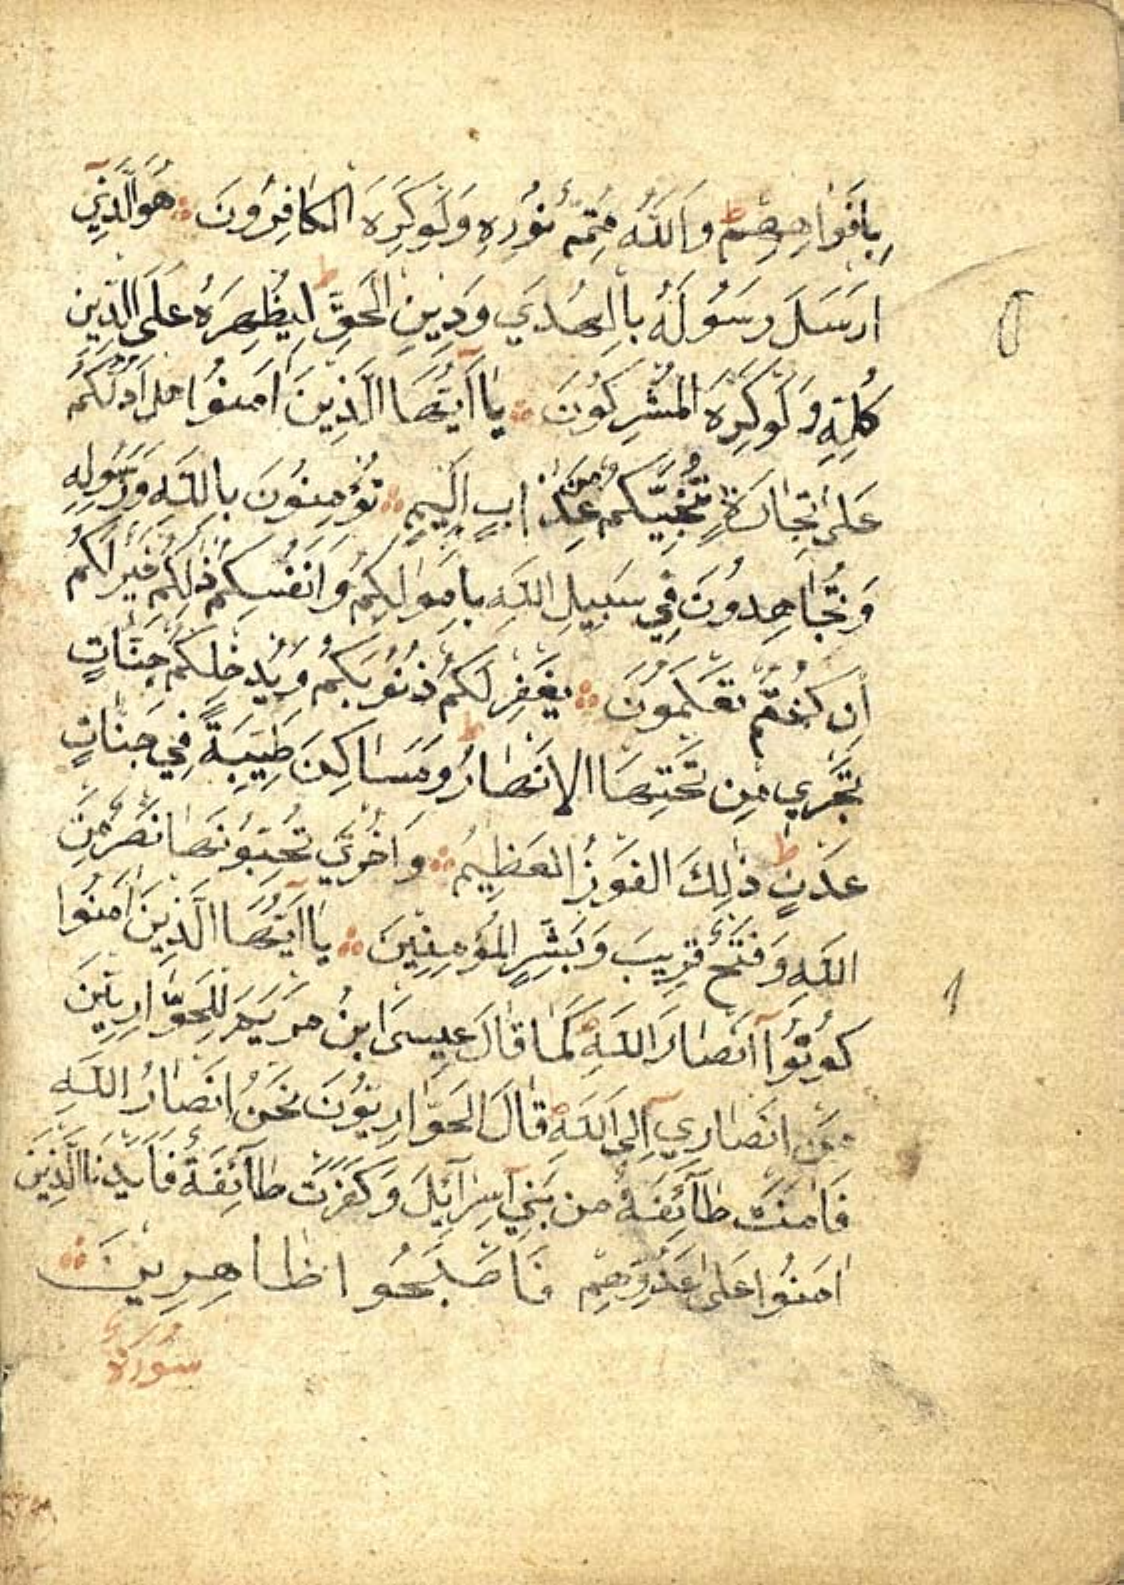 بِاَفْوَاهِهِمْ ط وَاللّٰهُ مُتِمُّ نُوْرِهِ وَلَوْكَرِهَ الْكَافِرُوْنَ هُوَالَّذِىٓ
اَرْسَلَ رَسُوْلَهُ بِالْهُدٰي وَدِيْنِ الْحَقِّ ط لِيُظْهِرَهُ عَلَى الدِّيْنِ
كُلِّهٖ وَلَوْكَرِهَ الْمُشْرِكُوْنَ يَآاَيُّهَا الَّذِيْنَ اٰمَنُوْا هَلْ اَدُلُّكُمْ
عَلٰى تِجَارَةٍ تُنْجِيْكُمْ مِنْ عَذَابٍ اَلِيْمٍ تُؤْمِنُوْنَ بِاللّٰهِ وَرَسُوْلِهِ
وَتُجَاهِدُوْنَ فِي سَبِيْلِ اللّٰهِ بِاَمْوَالِكُمْ وَاَنْفُسِكُمْ ذٰلِكُمْ خَيْرٌ لَكُمْ
اِنْ كُنْتُمْ تَعْلَمُوْنَ يَغْفِرْ لَكُمْ ذُنُوْبَكُمْ وَيُدْخِلْكُمْ جَنَّاتٍ
تَجْرِي مِنْ تَحْتِهَا الْاَنْهَارُ ط وَمَسَاكِنَ طَيِّبَةً فِي جَنَّاتِ
عَدْنٍ ط ذٰلِكَ الْفَوْزُ الْعَظِيْمُ وَاُخْرٰي تُحِبُّوْنَهَا نَصْرٌ مِنَ
اللّٰهِ وَفَتْحٌ قَرِيْبٌ وَبَشِّرِ الْمُؤْمِنِيْنَ يَآاَيُّهَا الَّذِيْنَ اٰمَنُوْا
كُوْنُوْآ اَنْصَارَ اللّٰهِ كَمَا قَالَ عِيْسَى ابْنُ مَرْيَمَ لِلْحَوَّارِيّٖنَ
مَنْ اَنْصَارِيٓ اِلَى اللّٰهِ قَالَ الْحَوَّارِيُّوْنَ نَحْنُ اَنْصَارُ اللّٰهِ
فَاٰمَنَتْ طَآئِفَةٌ مِنْ بَنِيٓ اِسْرَآئِيْلَ وَكَفَرَتْ طَآئِفَةٌ فَاَيَّدْنَا الَّذِيْنَ
اٰمَنُوْا عَلٰى عَدُوِّهِمْ فَاَصْبَحُوْا ظَاهِرِيْنَ
سُوْرَةُ